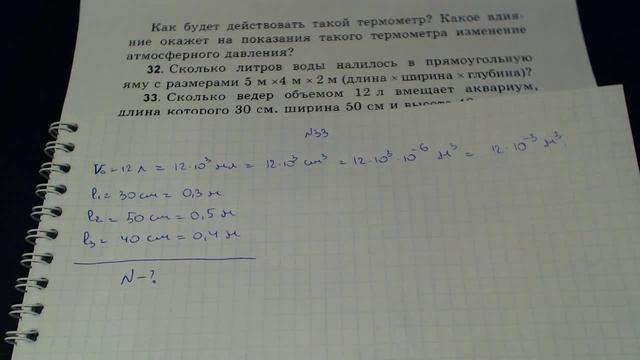 Как будет действовать такой термометр? Какое влия-
ние окажет на показания такого термометра изменение
атмосферного давления?
32. Сколько литров воды налилось в прямоугольную
яму с размерами 5 м × 4 м × 2 м (длина × ширина × глубина)?
33. Сколько ведер объемом 12 л вмещает аквариум,
длина которого 30 см, ширина 50 см и высота
N33
V₀ = 12 л = 12·10³ мл = 12·10³ см³ = 12·10³·10⁻⁶ м³ = 12·10⁻³ м³
l₁ = 30 см = 0,3 м
l₂ = 50 см = 0,5 м
l₃ = 40 см = 0,4 м
N-?